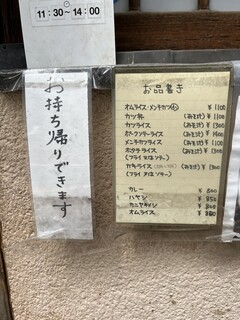 11:30〜14:00
お持ち帰りできます
お品書き
オムライス・メンチカツ ¥1100
カツ丼 (みそ汁) ¥1100
カツライス (みそ汁) ¥1300
ポークソテーライス (みそ汁) ¥1400
メンチカツライス (みそ汁) ¥1100
ホタテライス (みそ汁) ¥1300
(フライ 又は ソテー)
カキライス (みそ汁) ¥1300
(フライ 又は ソテー)
カレー ¥800
ハヤシ ¥850
カニヤキメシ
オムライス